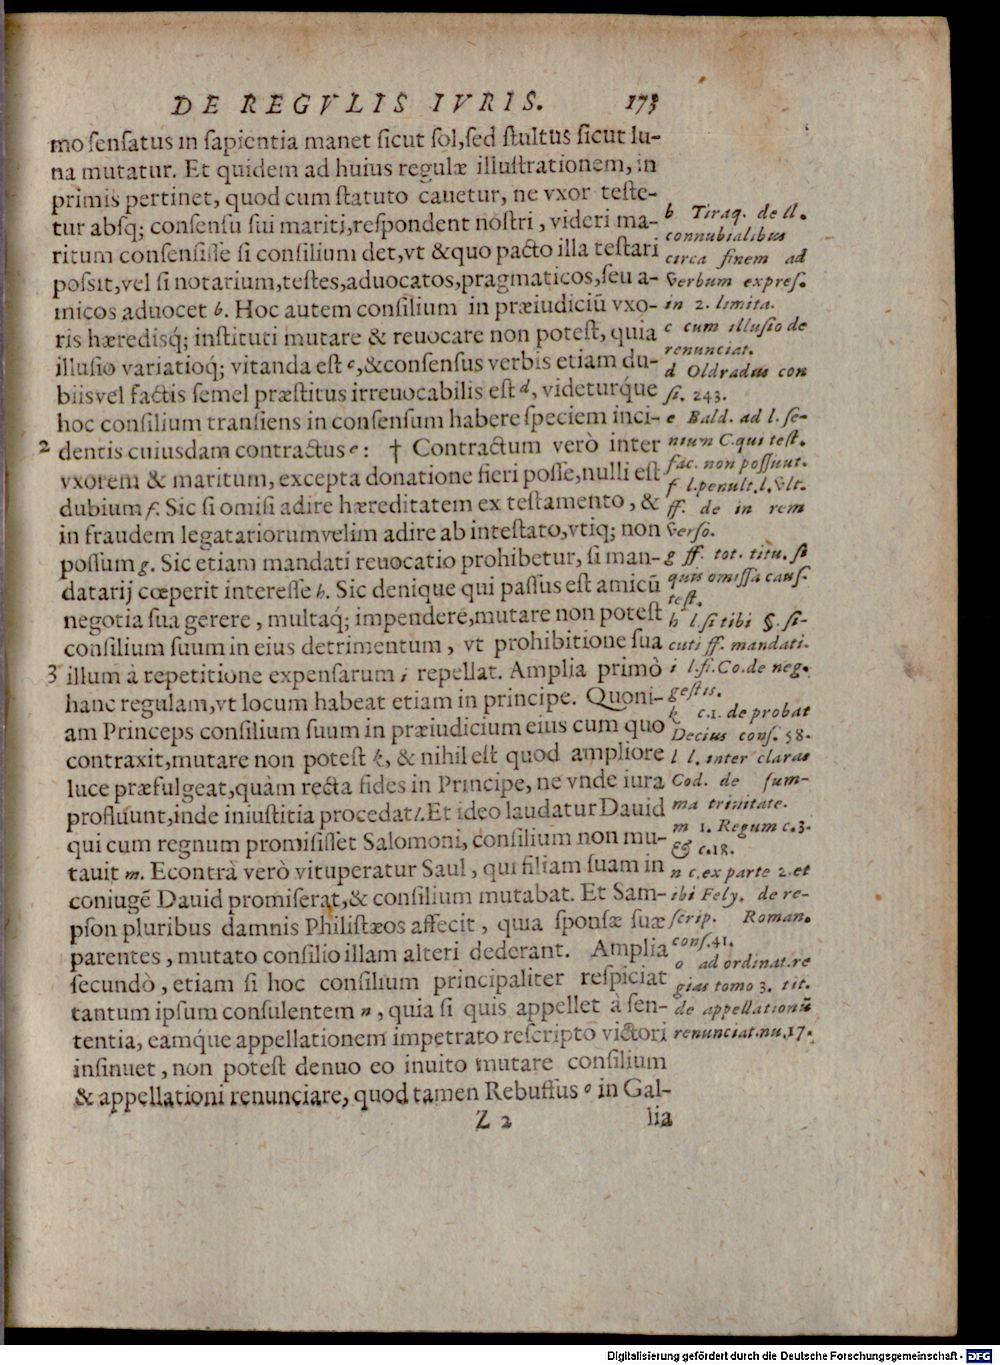 DE REGVLIS IVRIS. 173
mo sensatus in sapientia manet sicut sol, sed stultus sicut lu-
na mutatur. Et quidem ad huius regulæ illustrationem, in
primis pertinet, quod cum statuto cauetur, ne vxor teste-
tur absq; consensu sui mariti, respondent nostri, videri ma-
ritum consensisse si consilium det, vt & quo pacto illa testari
possit, vel si notarium, testes, aduocatos, pragmaticos, seu a-
micos aduocet b. Hoc autem consilium in præiudiciū vxo-
ris hæredisq́; instituti mutare & reuocare non potest, quia
illusio variatioq́; vitanda est c, & consensus verbis etiam du-
biis vel factis semel præstitus irreuocabilis est d, videturq́ue
hoc consilium transiens in consensum habere speciem inci-
2 dentis cuiusdam contractus e: † Contractum verò inter
vxorem & maritum, excepta donatione fieri posse, nulli est
dubium f. Sic si omisi adire hæreditatem ex testamento, &
in fraudem legatariorum velim adire ab intestato, vtiq; non
possum g. Sic etiam mandati reuocatio prohibetur, si man-
datarij cœperit interesse h. Sic denique qui passus est amicū
negotia sua gerere, multaq́; impendere, mutare non potest
consilium suum in eius detrimentum, vt prohibitione sua
3 illum à repetitione expensarum i repellat. Amplia primò
hanc regulam, vt locum habeat etiam in principe. Quoni-
am Princeps consilium suum in præiudicium eius cum quo
contraxit, mutare non potest k, & nihil est quod ampliore
luce præfulgeat, quàm recta fides in Principe, ne vnde iura
profluunt, inde iniustitia procedat l. Et ideo laudatur Dauid
qui cum regnum promisisset Salomoni, consilium non mu-
tauit m. Econtrà verò vituperatur Saul, qui filiam suam in
coniugē Dauid promiserat, & consilium mutabat. Et Sam-
pson pluribus damnis Philistæos affecit, quia sponsæ suæ
parentes, mutato consilio illam alteri dederant. Amplia
secundò, etiam si hoc consilium principaliter respiciat
tantum ipsum consulentem n, quia si quis appellet à sen-
tentia, eamq́ue appellationem impetrato rescripto victori
insinuet, non potest denuo eo inuito mutare consilium
& appellationi renunciare, quod tamen Rebuffus o in Gal-
Z 2 lia
b Tiraq. de ll.
connubialibus
circa finem ad
verbum expres.
in 2. limita.
c cum illusio de
renunciat.
d Oldradus con
si. 243.
e Bald. ad l. se-
nium C. qui test.
fac. non possunt.
f l. penult. l. vlt.
ff. de in rem
verso.
g ff. tot. titu. si
quis omissa caus.
test.
h l. si tibi §. si-
cuti ff. mandati.
i l. fi. Co. de neg.
gestis.
k c. 1. de probat
Decius cons. 58.
l l. inter claras
Cod. de sum-
ma trinitate.
m 1. Regum c. 3.
& c. 18.
n c. ex parte 2. et
ibi Fely. de re-
scrip. Roman.
cons. 41.
o ad ordinat. re
gias tomo 3. tit.
de appellationū
renunciat. nu. 17.
Digitalisierung gefördert durch die Deutsche Forschungsgemeinschaft - DFG